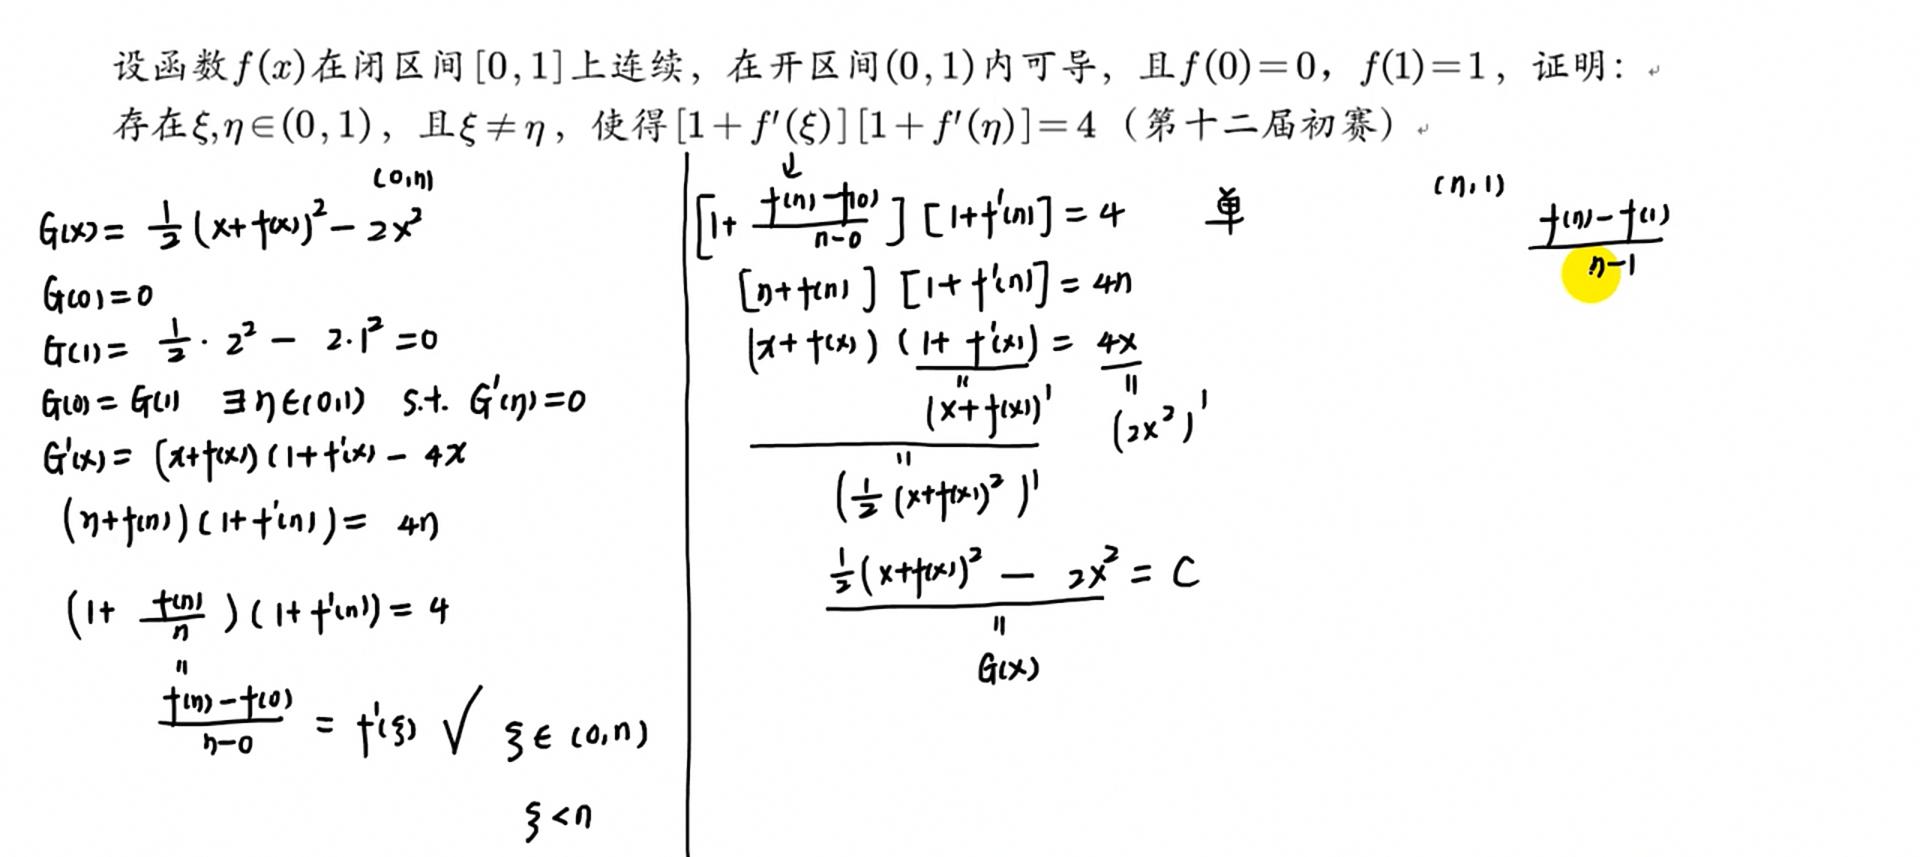 设函数f(x)在闭区间[0,1]上连续，在开区间(0,1)内可导，且f(0)=0，f(1)=1，证明：
存在ξ,η∈(0,1)，且ξ≠η，使得[1+f′(ξ)][1+f′(η)]=4（第十二届初赛）
(0,η)
G(x)= 1/2 (x+f(x))² − 2x²
G(0)=0
G(1)= 1/2 · 2² − 2·1² =0
G(0)=G(1) ∃η∈(0,1) s.t. G′(η)=0
G′(x)= (x+f(x))(1+f′(x) − 4x
(η+f(η))(1+f′(η))= 4η
(1+ f(η)/η )(1+f′(η))= 4
=
(f(η)−f(0))/(η−0) = f′(ξ) √ ξ∈(0,η)
ξ<η
↓
[1+ (f(η)−f(0))/(η−0)][1+f′(η)]=4 单
[η+f(η)][1+f′(η)]=4η
(x+f(x))(1+f′(x))= 4x
= =
(x+f(x))′ (2x²)′
=
(1/2 (x+f(x))²)′
1/2(x+f(x))² − 2x² = C
=
G(x)
(η,1)
(f(η)−f(1))/(η−1)